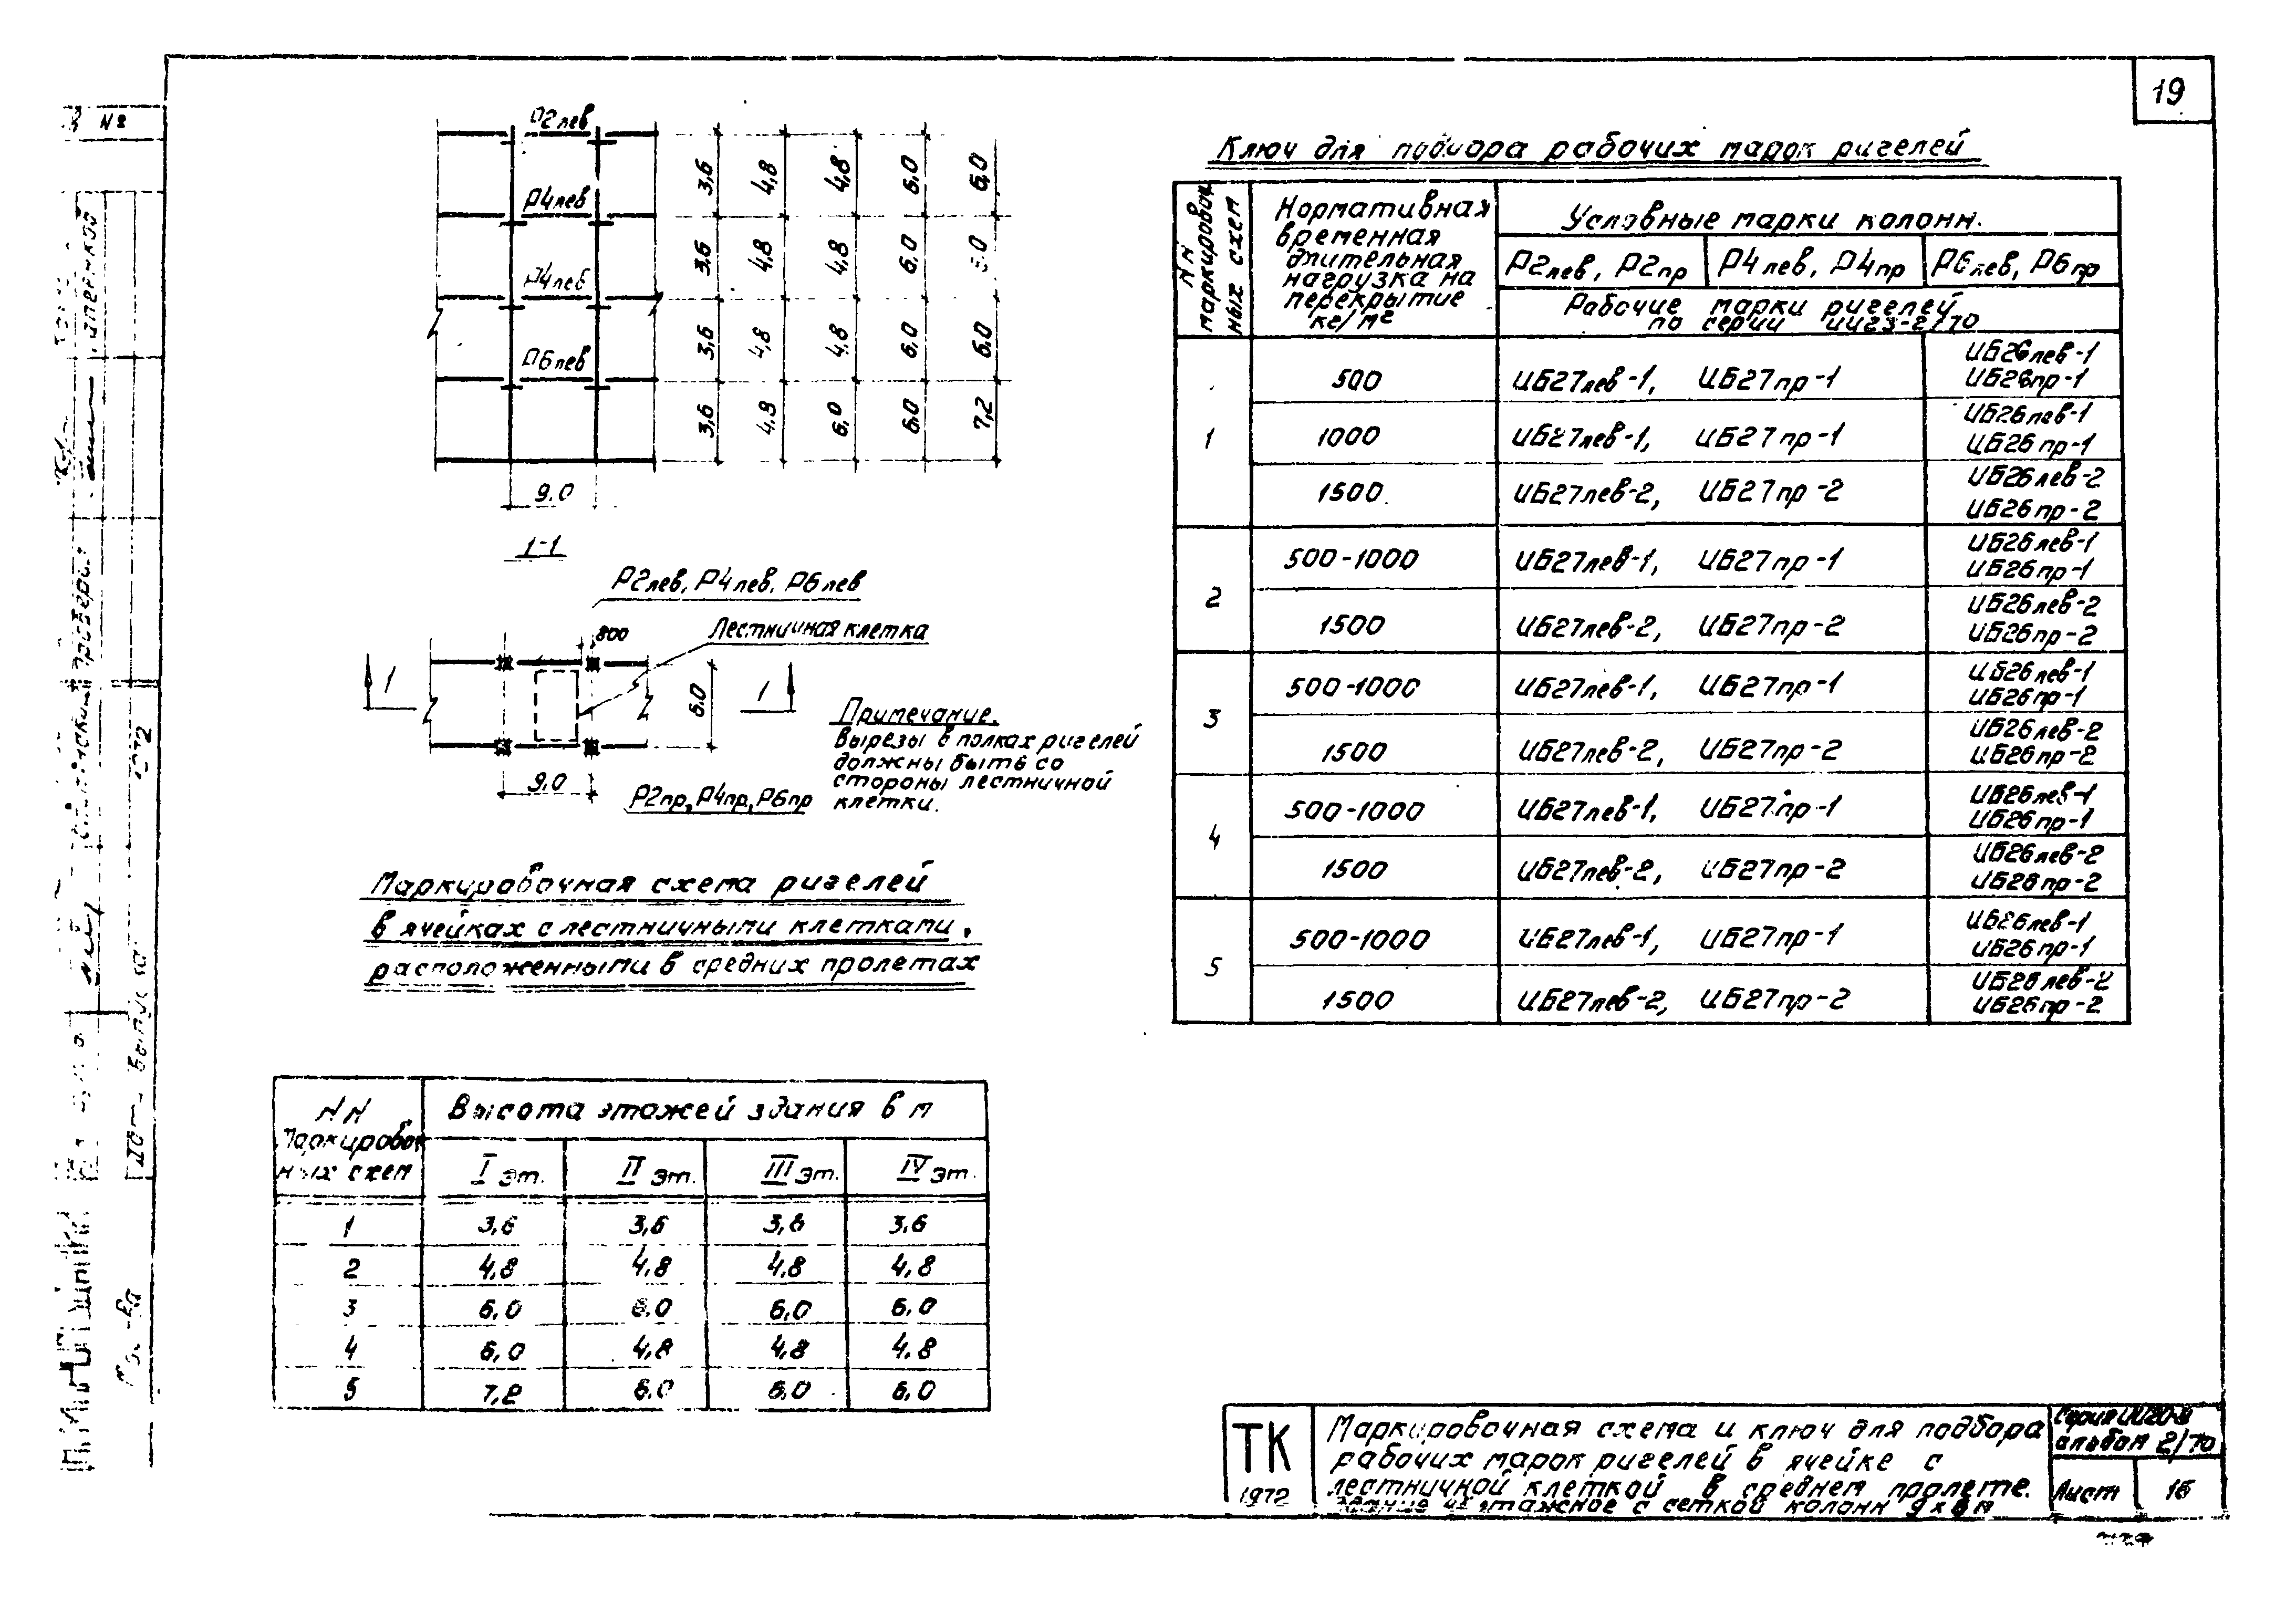 19
№
Р2лев
Р4лев
Р4лев
Р6лев
3,6 4,8 4,8 6,0 6,0
3,6 4,8 4,8 6,0
3,6 4,8 4,8 6,0 6,0
3,6 4.8 6,0 6,0 7,2
9.0
1-1
Р2лев, Р4лев, Р6лев
800
Лестничная клетка
1
1
6.0
9.0
Р2пр, Р4пр, Р6пр
Примечание.
Вырезы в полках ригелей
должны быть со
стороны лестничной
клетки.
Маркировочная схема ригелей
в ячейках с лестничными клетками,
расположенными в средних пролетах
NN
Маркировоч
ных схем
Высота этажей здания в м
I эт. II эт. III эт. IV эт.
1 3,6 3,6 3,6 3,6
2 4,8 4,8 4,8 4,8
3 6,0 6.0 6,0 6,0
4 6,0 4,8 4,8 4.8
5 7,2 6.0 6,0 6,0
Ключ для подбора рабочих марок ригелей
NN
маркировоч
ных схем
Нормативная
временная
длительная
нагрузка на
перекрытие
кг/м²
Условные марки колонн.
Р2лев, Р2пр Р4лев, Р4пр Р6лев, Р6пр
Рабочие марки ригелей
по серии ИИ23-2/70
1
500 ИБ27лев-1, ИБ27пр-1 ИБ26лев-1
ИБ26пр-1
1000 ИБ27лев-1, ИБ27пр-1 ИБ26лев-1
ИБ26пр-1
1500. ИБ27лев-2, ИБ27пр-2 ИБ26лев-2
ИБ26пр-2
2
500-1000 ИБ27лев-1, ИБ27пр-1 ИБ26лев-1
ИБ26пр-1
1500 ИБ27лев-2, ИБ27пр-2 ИБ26лев-2
ИБ26пр-2
3
500-1000 ИБ27лев-1, ИБ27пр-1 ИБ26лев-1
ИБ26пр-1
1500 ИБ27лев-2, ИБ27пр-2 ИБ26лев-2
ИБ26пр-2
4
500-1000 ИБ27лев-1, ИБ27пр-1 ИБ26лев-1
ИБ26пр-1
1500 ИБ27лев-2, ИБ27пр-2 ИБ26лев-2
ИБ26пр-2
5
500-1000 ИБ27лев-1, ИБ27пр-1 ИБ26лев-1
ИБ26пр-1
1500 ИБ27лев-2, ИБ27пр-2 ИБ26лев-2
ИБ26пр-2
ТК
1972
Маркировочная схема и ключ для подбора
рабочих марок ригелей в ячейке с
лестничной клеткой в среднем пролете.
Здание 4х этажное с сеткой колонн 9х6м
Серия ИИ20-8
альбом 2/70
Лист 16
1972
Дата выпуска